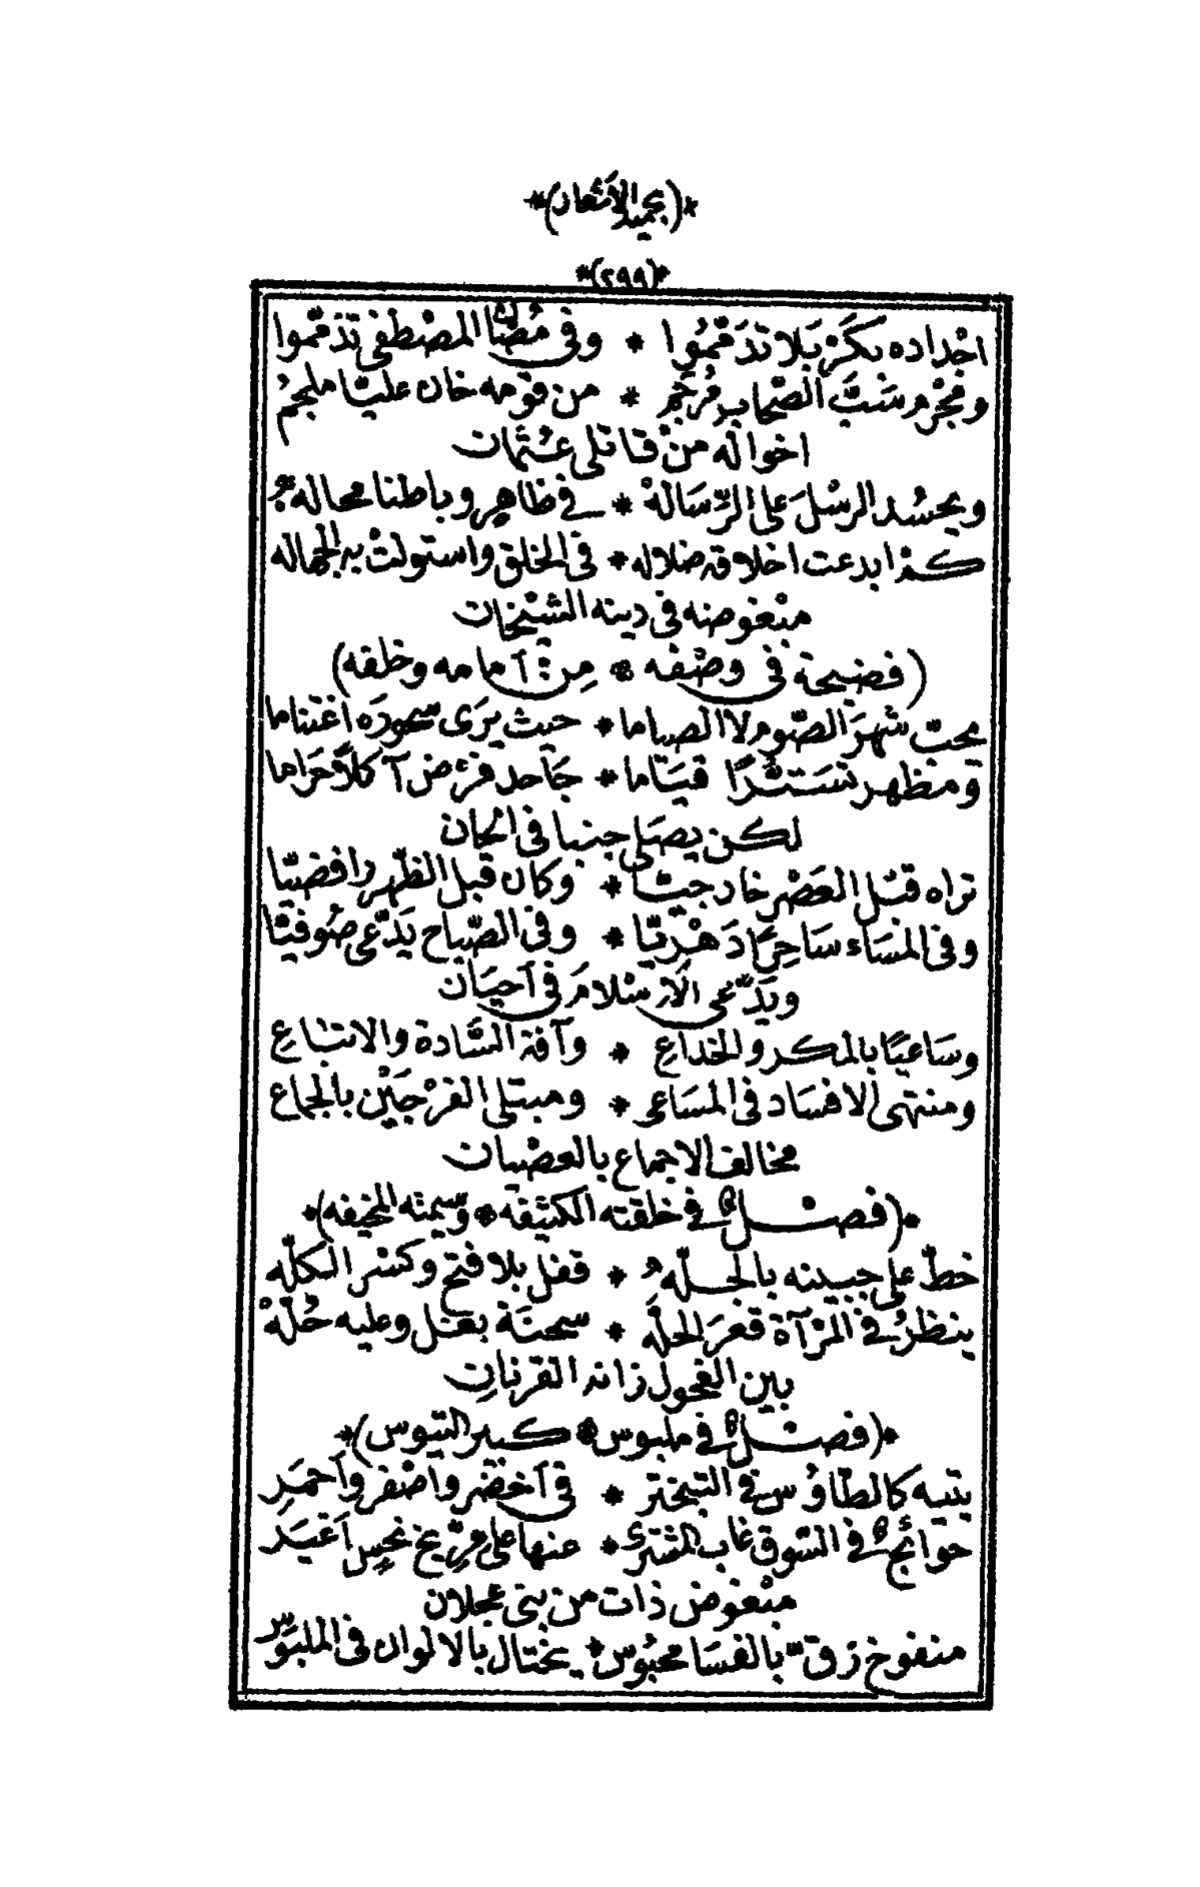 *(بحميد الأشعار)*
*(٢٩٩)*
اجداده بكَرْبَلا تَذَمَّمُوا * وفى مُصَّاب المصْطفى تذمّموا
ومجْرم سَبَّ الصّحاب مُرجم * من قومه خان عليّا ملجمُ
اخواله منْ قاتلى عُثمان
ويحسُد الرسْلَ على الرِّسَالهْ * فى ظاهِرٍ وباطنا محاله
كم ابدعت اخلاقه ضلاله * فى الخلق واستولتْ به الجهاله
مبْغوضه فى دينه الشيْخان
(فضيحة فى وصْفه * مِن أمامه وخلفه)
يحبّ شهرَ الصّوم لا الصياما * حيث يرَى سحورَه اغتناما
ومظهر تسَتُّرًا قيَاما * جَاحد فرْض آكلاً حَرَاما
لكن يصَلى جنبا فى الحان
تراه قبْل العَصْر خارجيّا * وكان قبل الظّهر رافضيّا
وفى المسَاء سَاحِرًا دَهْريّا * وفى الصّباح يَدّعى صُوفيّا
ويَدّعى الاِسْلامَ فى اَحيَان
وسَاعيًا بالمكر والخداعِ * وآفة السَّادة والاتباعِ
ومنتهى الافسَاد فى المسَاعى * ومبتلى الفرْجَيْن بالجماع
مخالف الاجماع بالعصْيان
*(فصْل فى خلقته الكثيفه * وسيمته المخيفه)*
خطّ على جبينه بالجلّه * قفل بلا فتح وكسْر الكلّه
ينظرُ فى المرْآة قعْرَ الحلّه * سحنَة بغل وعليه حُلّهْ
بين الفحول زانه القرنانِ
*(فصْل فى ملبوس * كبير التيوس)*
يتيه كالطّاوُس فى التبختر * فى اَخضر واصْفر واَحمَرِ
حوائجٌ فى السّوق غاب المشترى * عنها على مرّيخ نحِس اَغبَر
مبْغوض ذات من بنى عجلان
منفوخ زقّ بالفسَا محبُوس * يختال بالالوان فى الملبوسِ